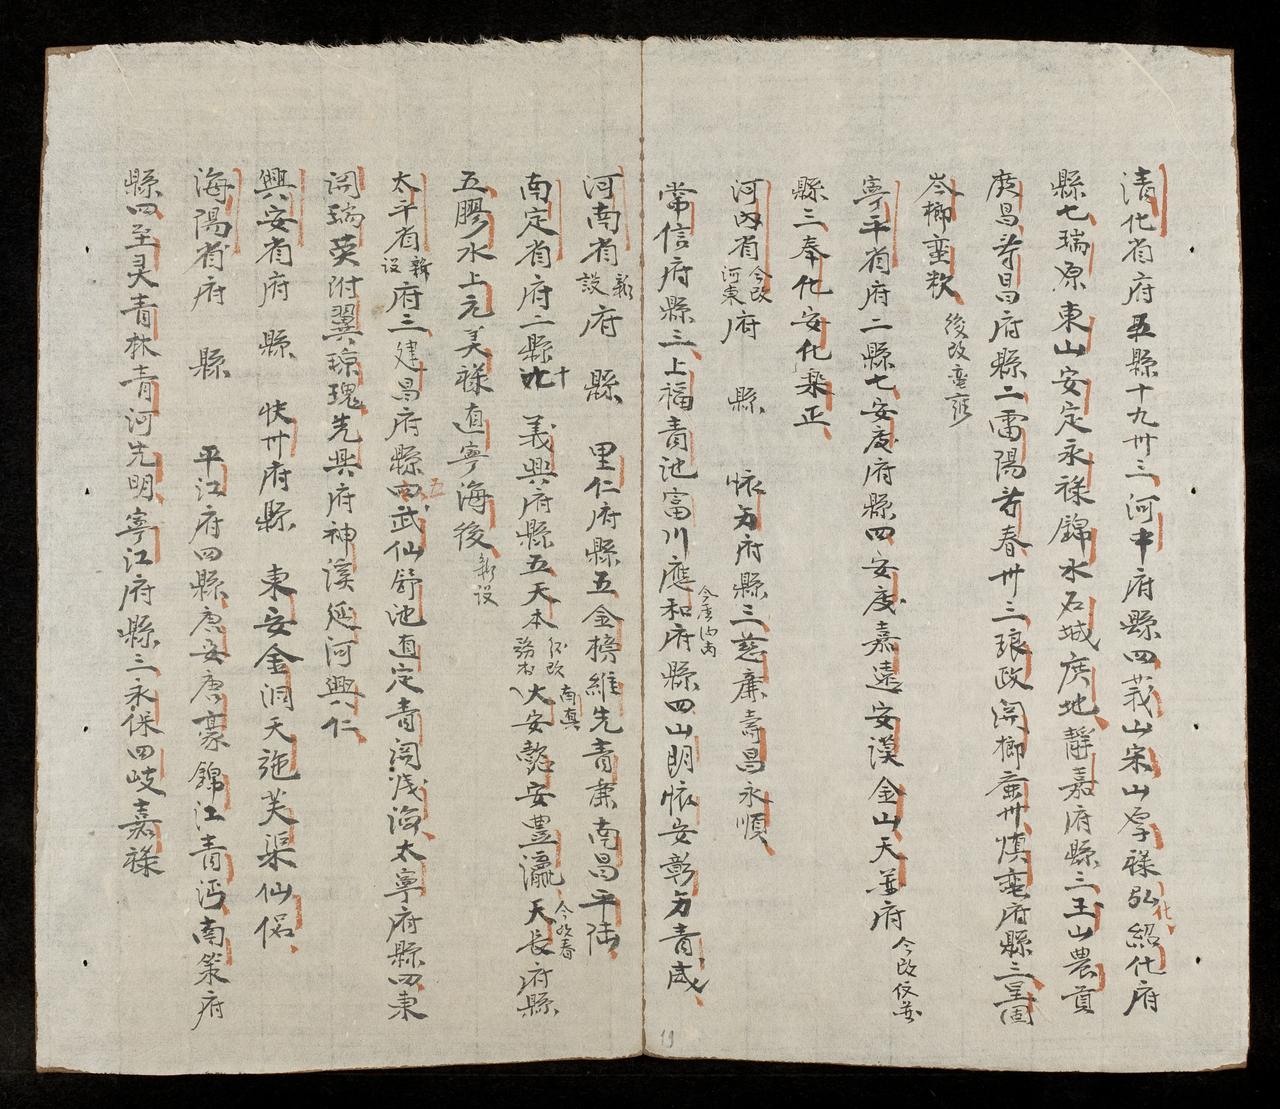 清化省府五縣十九卅三河中府縣四莪山宋山厚祿弘化紹化府
縣七瑞原東山安定永祿錦水石城廣地靜嘉府縣三玉山農貢
廣昌壽昌府縣二雷陽壽春卅三琅政関榔蛮卅慎蛮府縣三呈固
岑榔蛮欵後改蛮
寧平省府二縣七安慶府縣四安慶嘉遠安謨金山天並府今改仗並
縣三奉化安化樂正
河內省今改河東府縣懷方府縣三慈廉壽昌永順
常信府縣三上福青池富川應和府縣四山朗懷安彰方青威
河南省新設府縣里仁府縣五金榜維先青廉南昌平陆
南定省府二縣十義興府縣五天本改務本大安南真懿安豊瀛天長府縣
五膠水上元美祿直寧海後新設
太平省新設府三建昌府縣五武仙舒池直定青関浅海太寧府縣四東
関瑞英附翼瓊瑰先興府神溪延河興仁
興安省府縣快卅府縣東安金洞天施芙渠仙侶
海陽省府縣平江府四縣唐安唐豪錦江青沔南策府
縣四至灵青林青河先明寧江府縣三永保四岐嘉祿
19